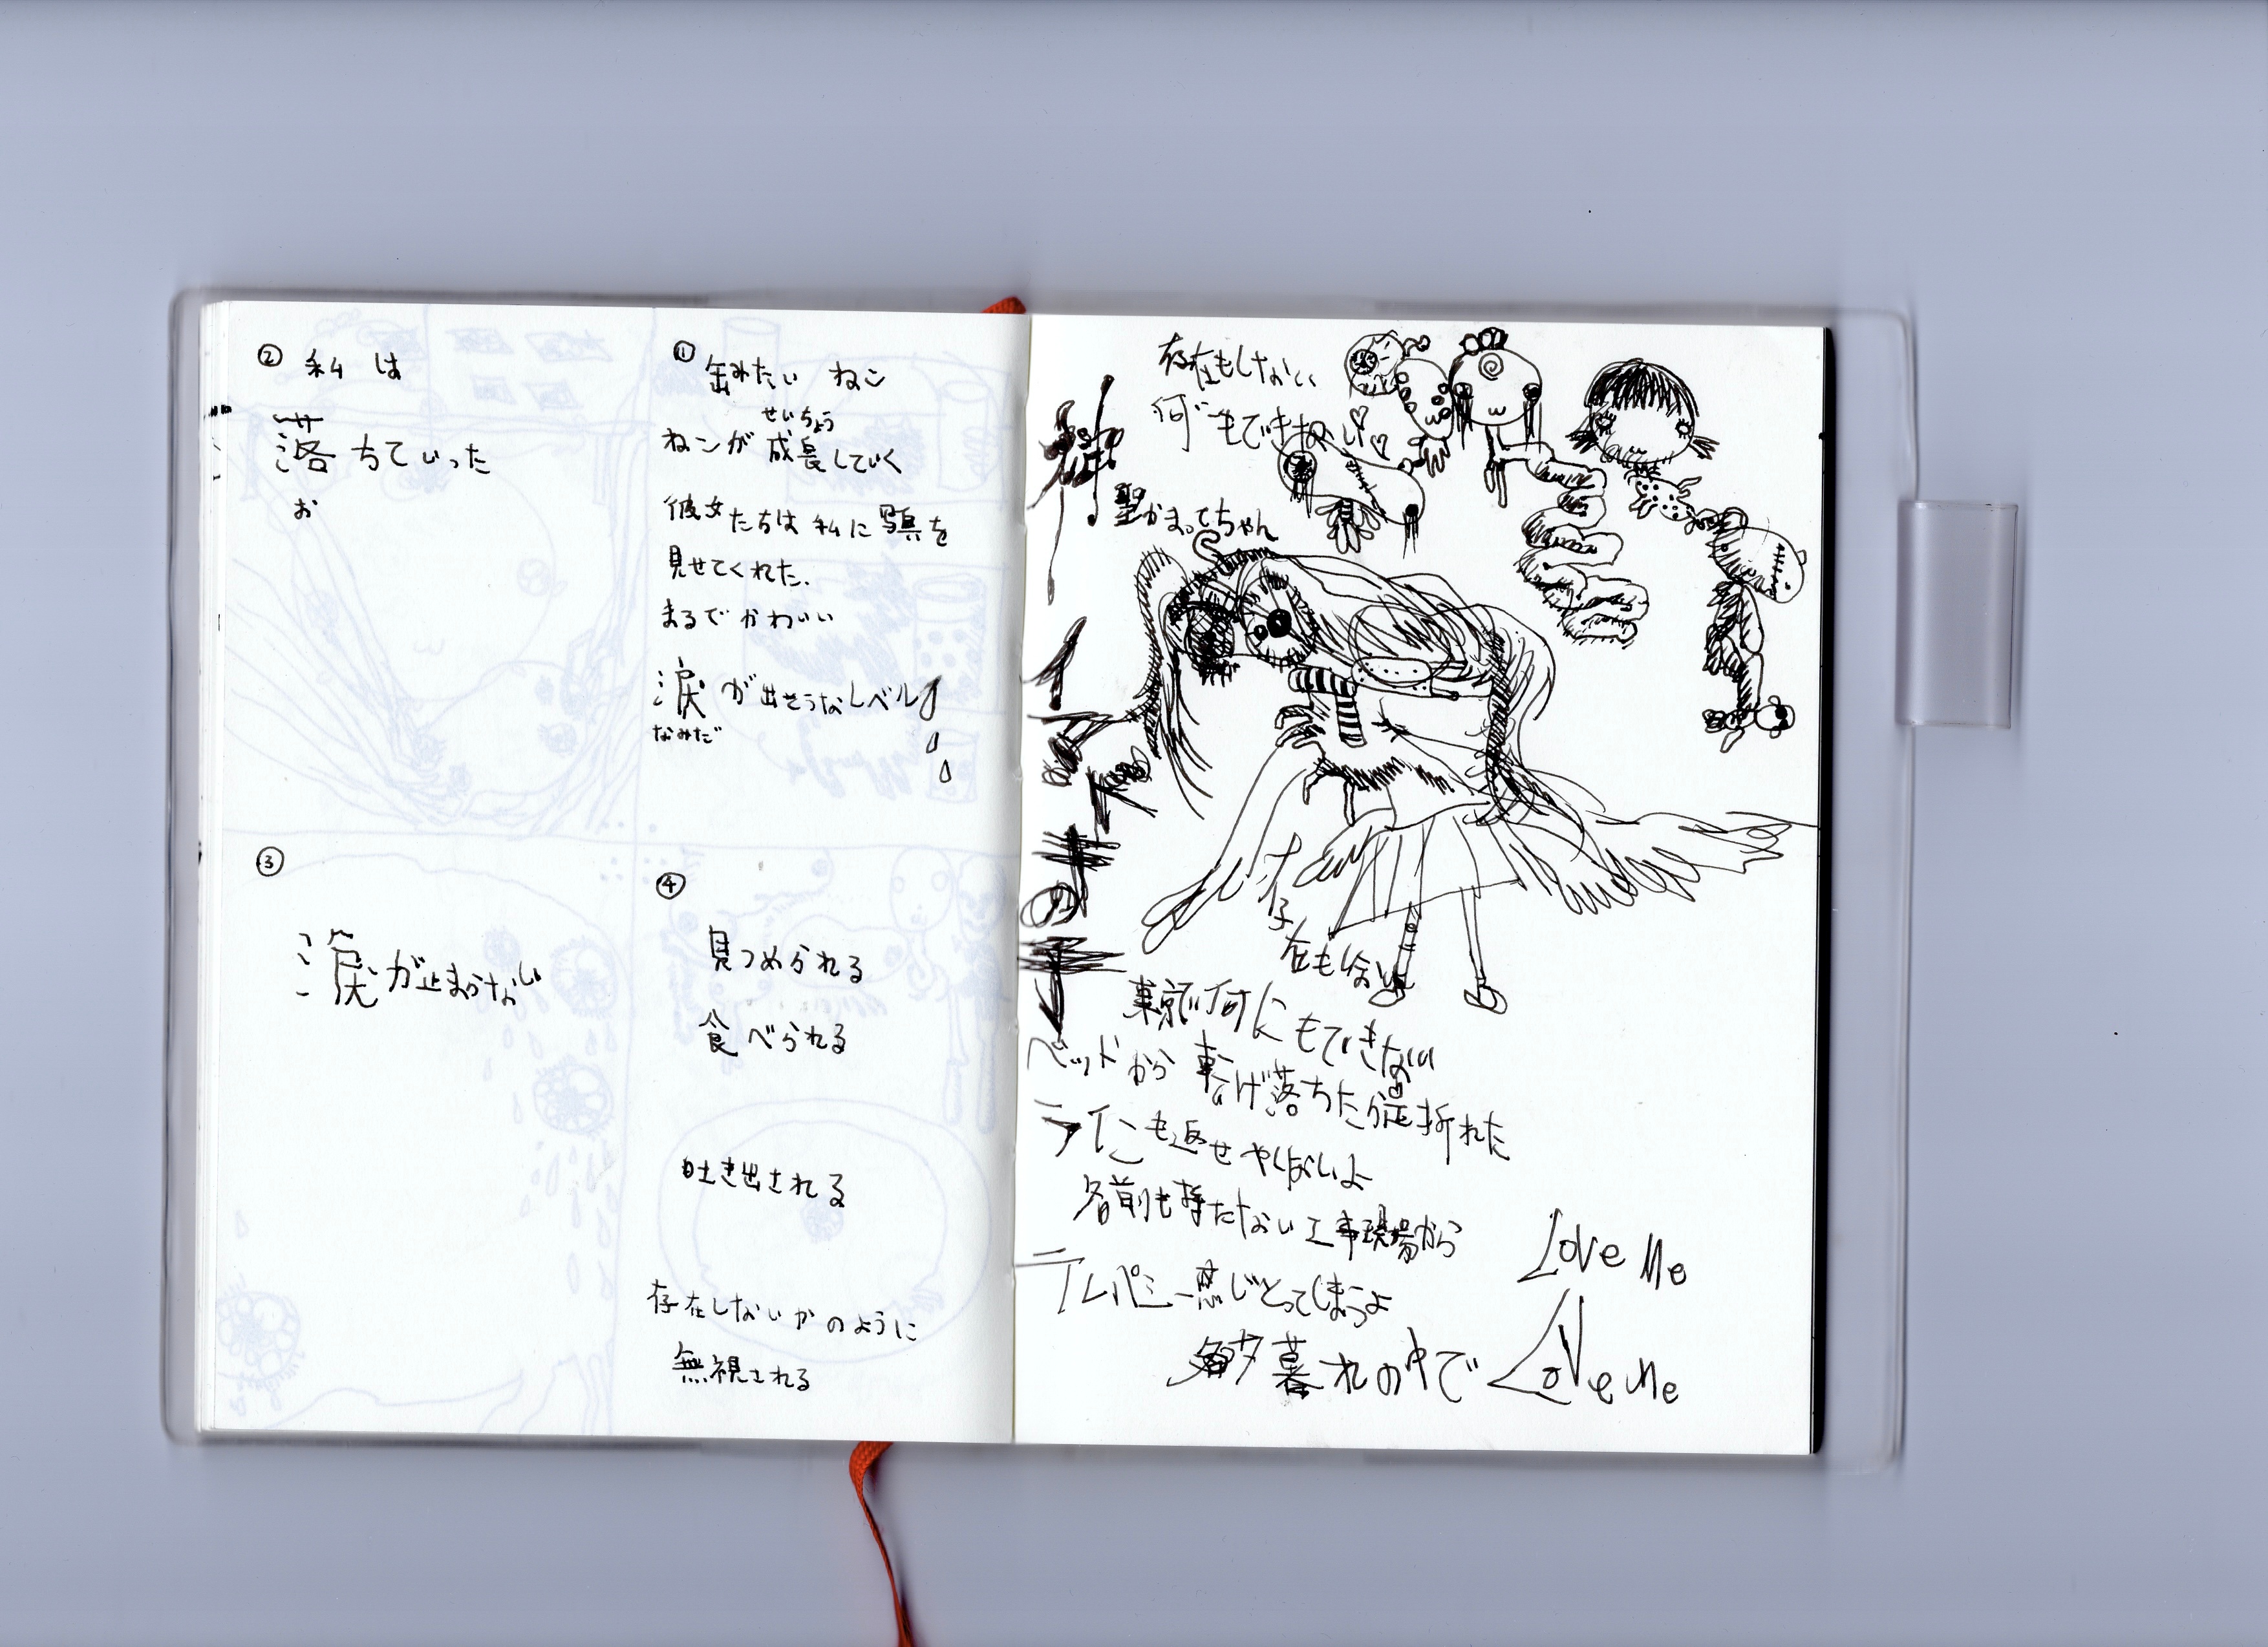 ①
缶みたい ねこ
せいちょう
ねこが成長していく
彼女たちは私に写真を
見せてくれた.
まるでかわいい
涙が出そうなレベル
なみだ
②
私は
落ちていった
お
③
涙が止まらない
④
見つめられる
食べられる
吐き出される
存在しないかのように
無視される
存在もしない
何もできない
神
聖かまってちゃん
存
在もしない
東京で何にもできない
ベッドから転げ落ちたら足折れた
ラインも返せやしないよ
名前も持たない工事現場から
テレパシー感じとってしまうよ
夕暮れの中で
Love Me
Love Me